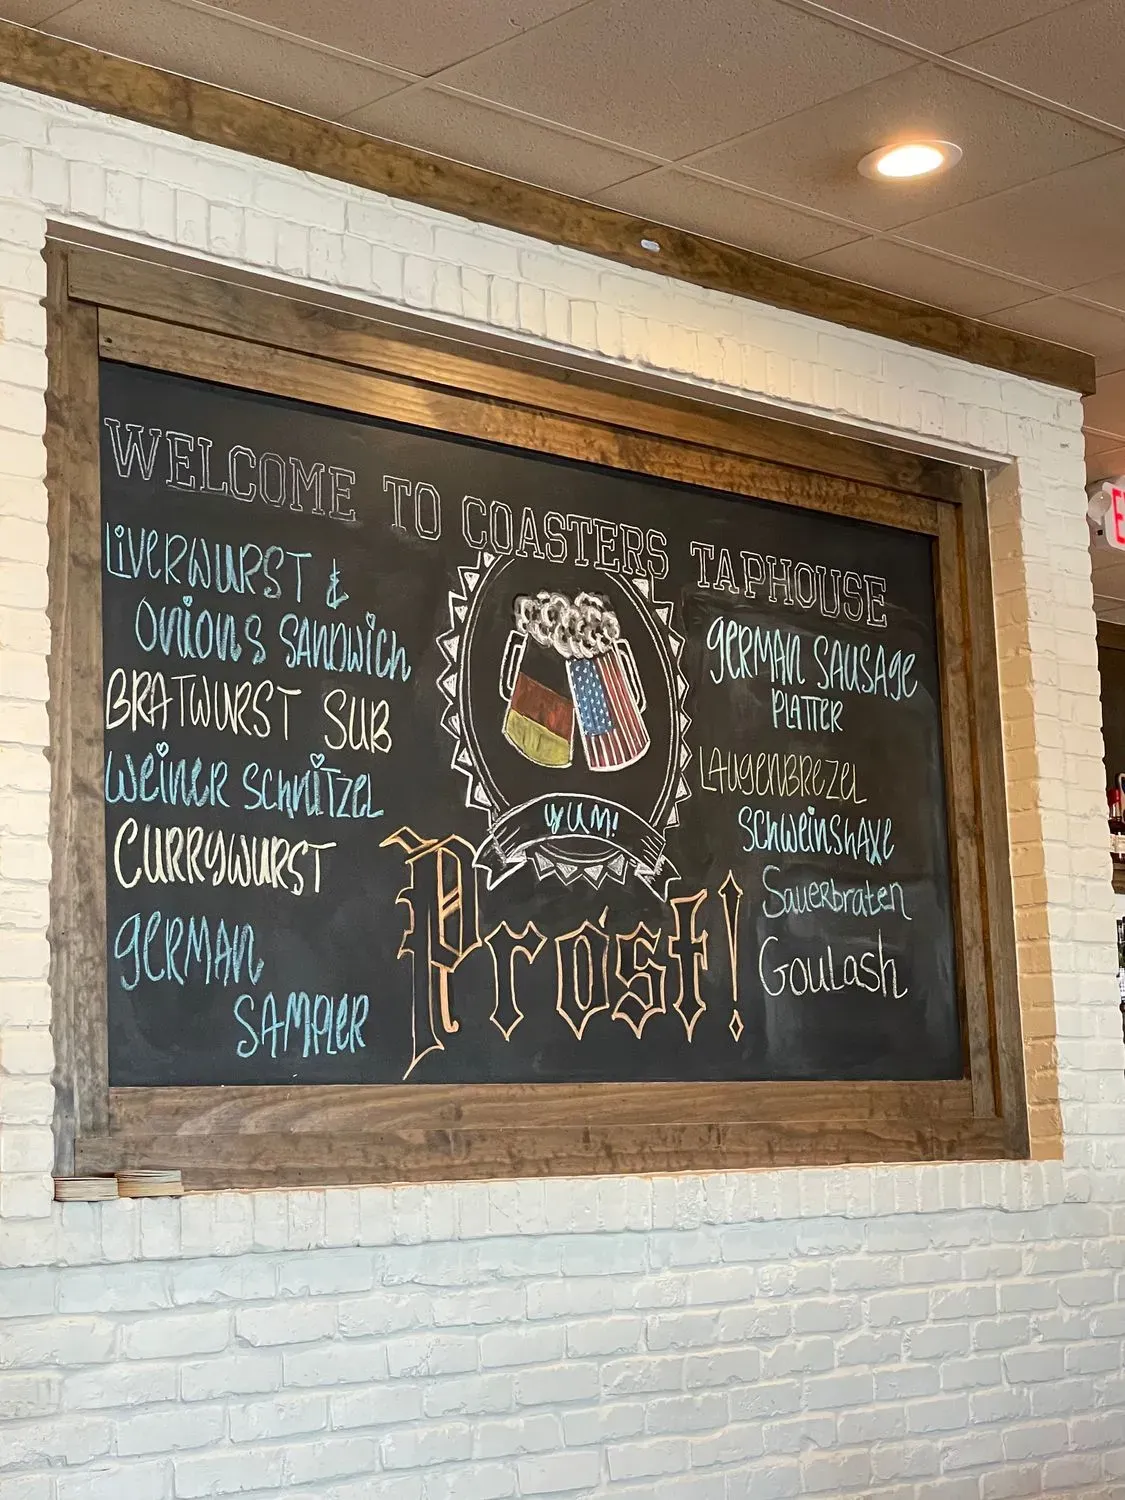 WELCOME TO COASTERS TAPHOUSE
LIVERWURST &
ONIONS SANDWICH
BRATWURST SUB
WEINER SCHNITZEL
CURRYWURST
GERMAN
SAMPLER
YUM!
Prost!
GERMAN SAUSAGE
PLATTER
LAUGENBREZEL
SCHWEINSHAXE
Sauerbraten
Goulash
E